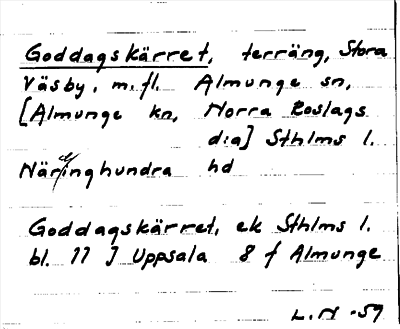 Goddagskärret, terräng, Stora
Väsby, m.fl. Almunge sn,
[Almunge kn, Norra Roslags
d:a] Sthlms l.
Närdinghundra hd
Goddagskärret, ek Sthlms l.
bl. 77 J Uppsala 8 f Almunge
L.N -59